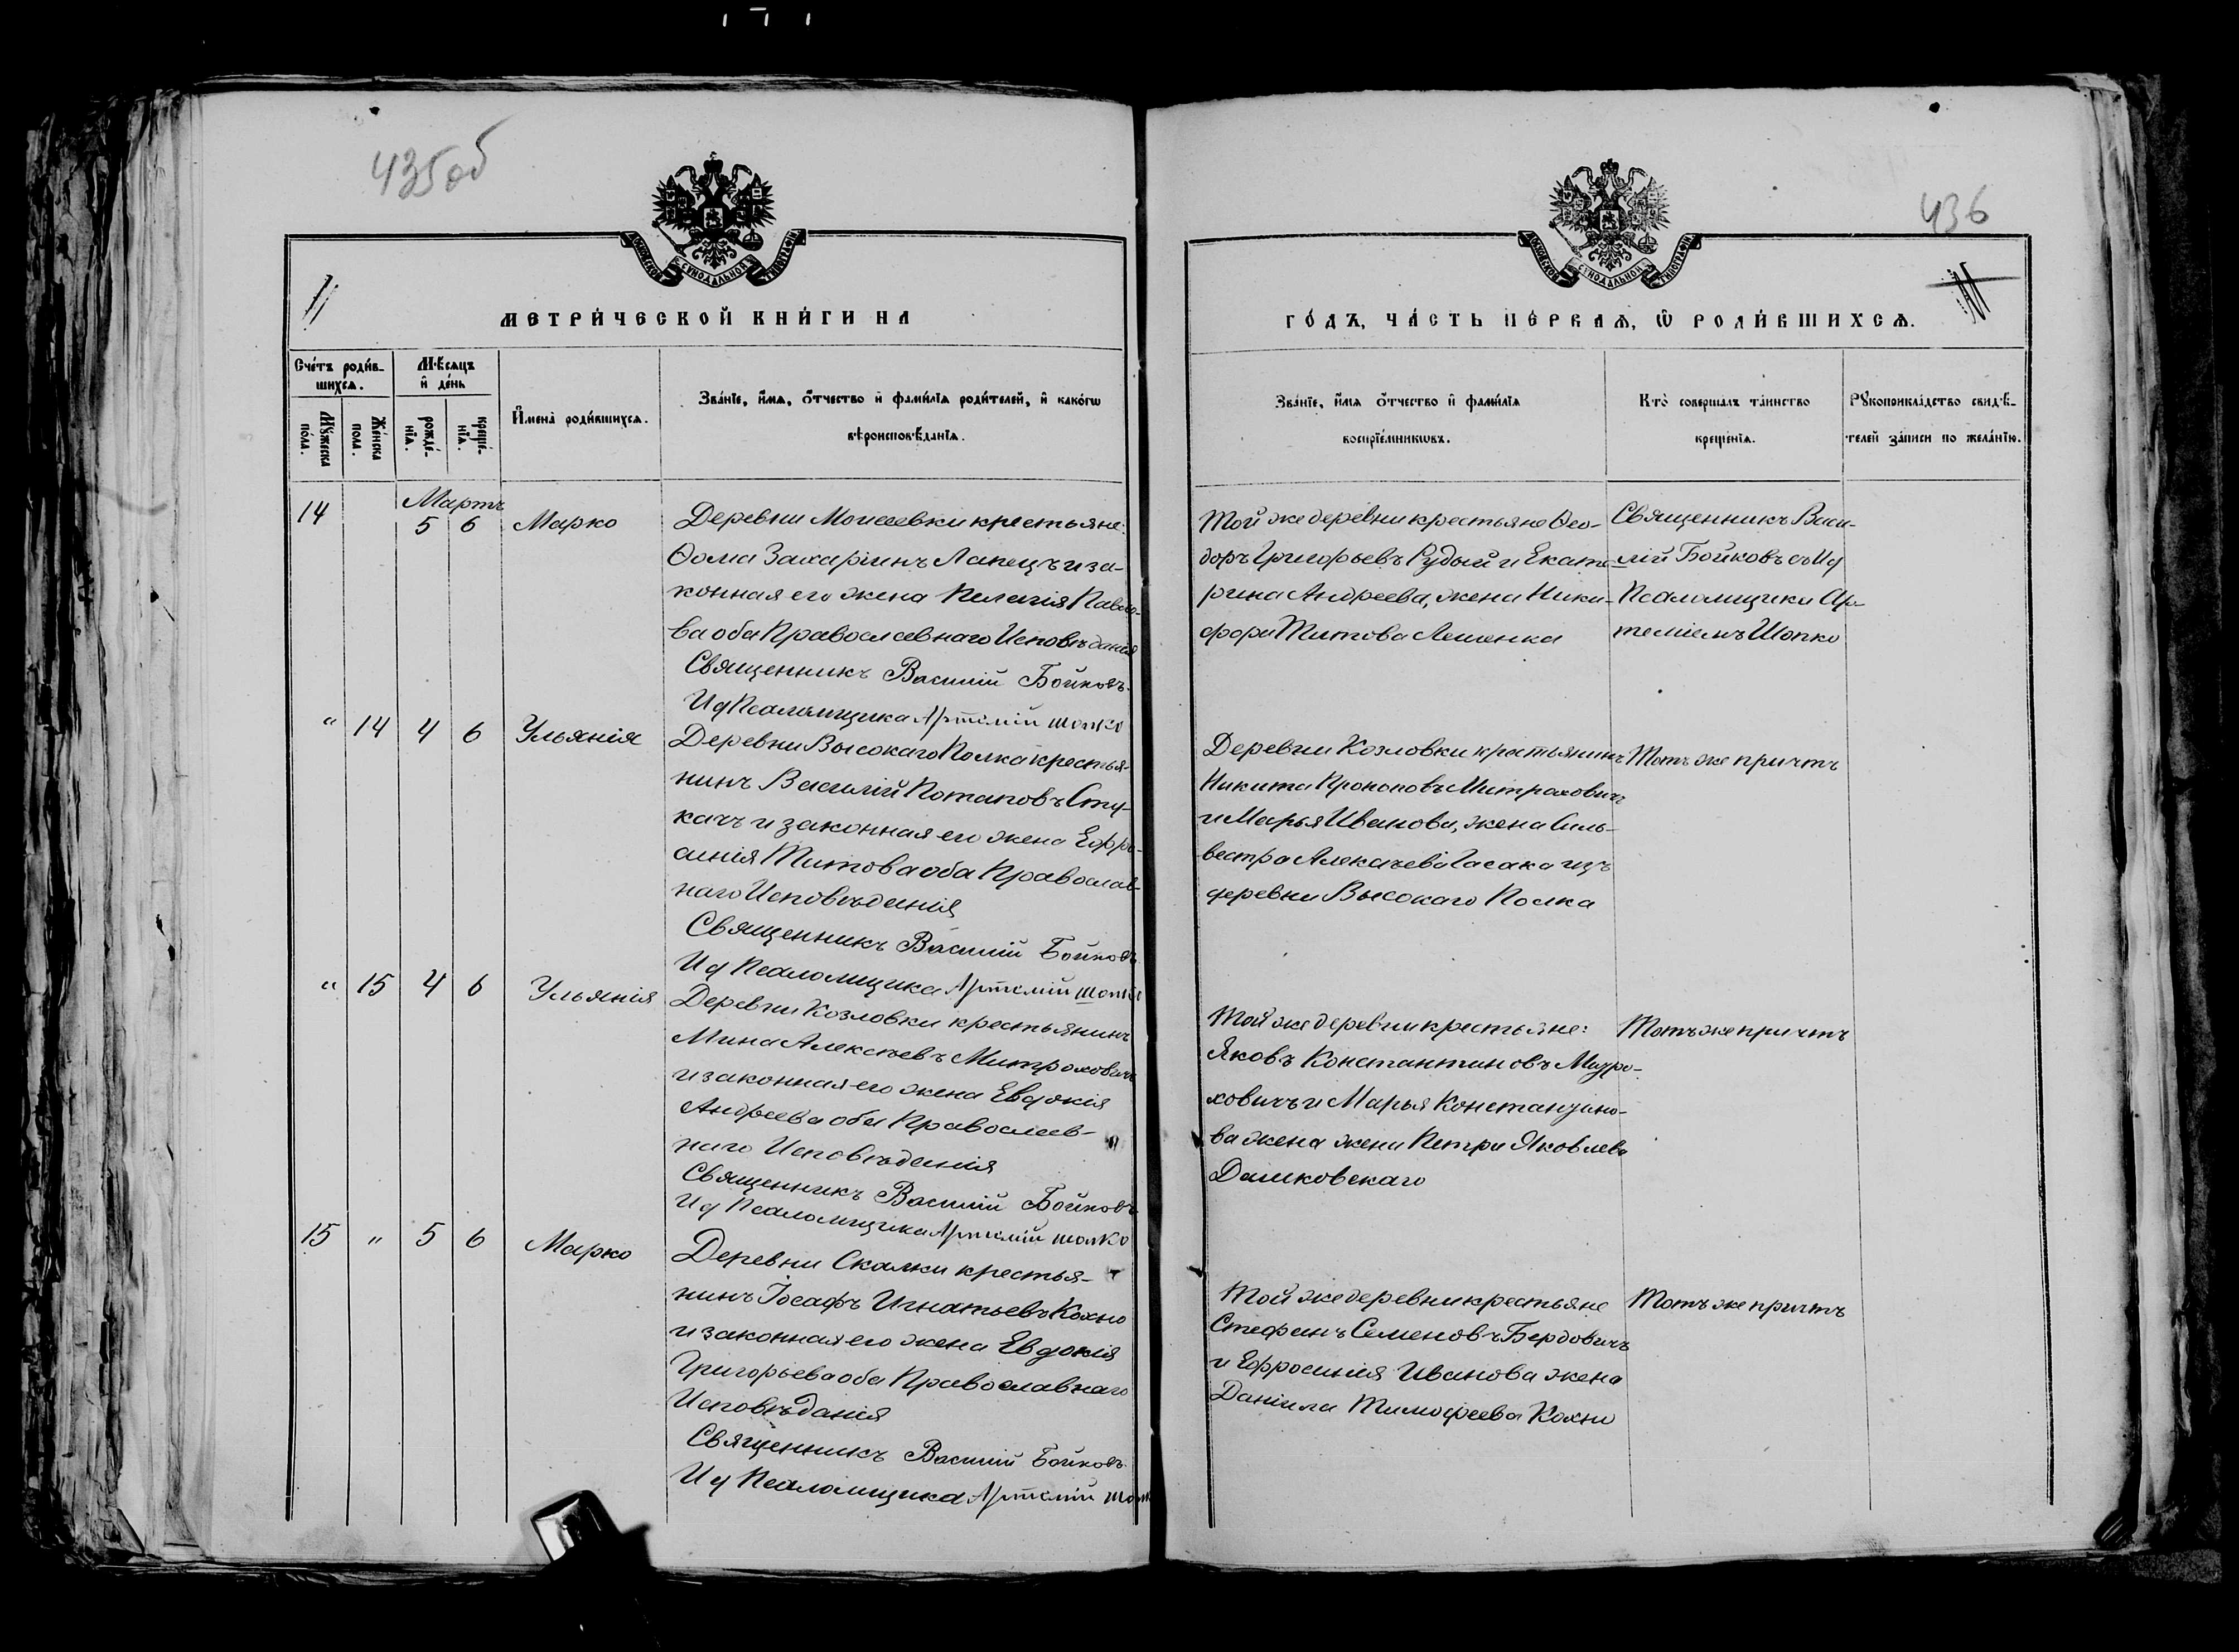 435об
436
МОСКОВСКОЙ СУНОДАЛЬНОЙ ТИПОГРАФИИ
МОСКОВСКОЙ СУНОДАЛЬНОЙ ТИПОГРАФИИ
МЕТРИ́ЧЕСКОЙ КНИ́ГИ НА
ГО́ДЪ, ЧА́СТЬ ПЕ́РВАѦ, Ѿ РОДИ́ВШИХСѦ.
Сче́тъ роди́в-
шихсѧ.
Мѣсѧцъ
и҆ де́нь
Мꙋ́жеска
по́ла.
Же́нска
по́ла.
рожде́-
нїѧ.
креще́-
нїѧ.
И҆мена̀ роди́вшихсѧ.
Зва́нїе, и҆́мѧ, ѻ҆́тчество и҆ фами́лїѧ роди́телей, и҆ како́гѡ
вѣроисповѣ́данїѧ.
Зва́нїе, и҆́мѧ ѻ҆́тчество и҆ фами́лїѧ
воспрїе́мникѡвъ.
Кто̀ соверша́лъ та́инство
креще́нїѧ.
Рꙋкоприкла́дство свидѣ́-
телей за́писи по жела́нїю.
Мартъ
14 5 6 Марко
Деревни Моисеевки крестьяне:
Ѳома Захаріинъ Лапецъ и за-
конная его жена Пелагія Павло-
ва оба Православнаго Исповѣданія
Священникъ Василій Бойковъ.
И д Псаломщика Артемій Шопко
Той же деревни крестьяне Ѳео-
доръ Григорьевъ Рудый и Екате-
рина Андреева, жена Ники-
фора Титова Лешенка
Священникъ Васи-
лій Бойковъ съ И д
Псаломщика Ар-
теміемъ Шопко
" 14 4 6 Ульянія
Деревни Высокаго Полка крестья-
нинъ Василій Потаповъ Сту-
качъ и законная его жена Ефро-
синія Титова оба Православ-
наго Исповѣданія
Священникъ Василій Бойковъ
И д Псаломщика Артемій Шопко
Деревни Козловки крестьянинъ
Никита Прокоповъ Митраховичъ
и Марья Иванова, жена Силь-
вестра Алексѣева Гасака изъ
деревни Высокаго Полка
Тотъ же причтъ
" 15 4 6 Ульянія
Деревни Козловки крестьянинъ
Мина Алексѣевъ Митраховичъ
и законная его жена Евдокія
Андреева оба Православ-
наго Исповѣданія
Священникъ Василій Бойковъ
И д Псаломщика Артемій Шопко
Той же деревни крестьяне:
Яковъ Константиновъ
и Марья Константино-
ва жена жена Петра Яковлева
Дашковскаго
Тотъ же причтъ
15 " 5 6 Марко
Деревни Скалки крестья-
нинъ Іосафъ Игнатьевъ Кохно
и законная его жена Евдокія
Григорьева оба Православнаго
Исповѣданія
Священникъ Василій Бойковъ.
И д Псаломщика Артемій
Той же деревни крестьяне
Стефанъ Семеновъ Бердовичъ
и Ефросинія Иванова жена
Даніила Тимофеева Кохно
Тотъ же причтъ